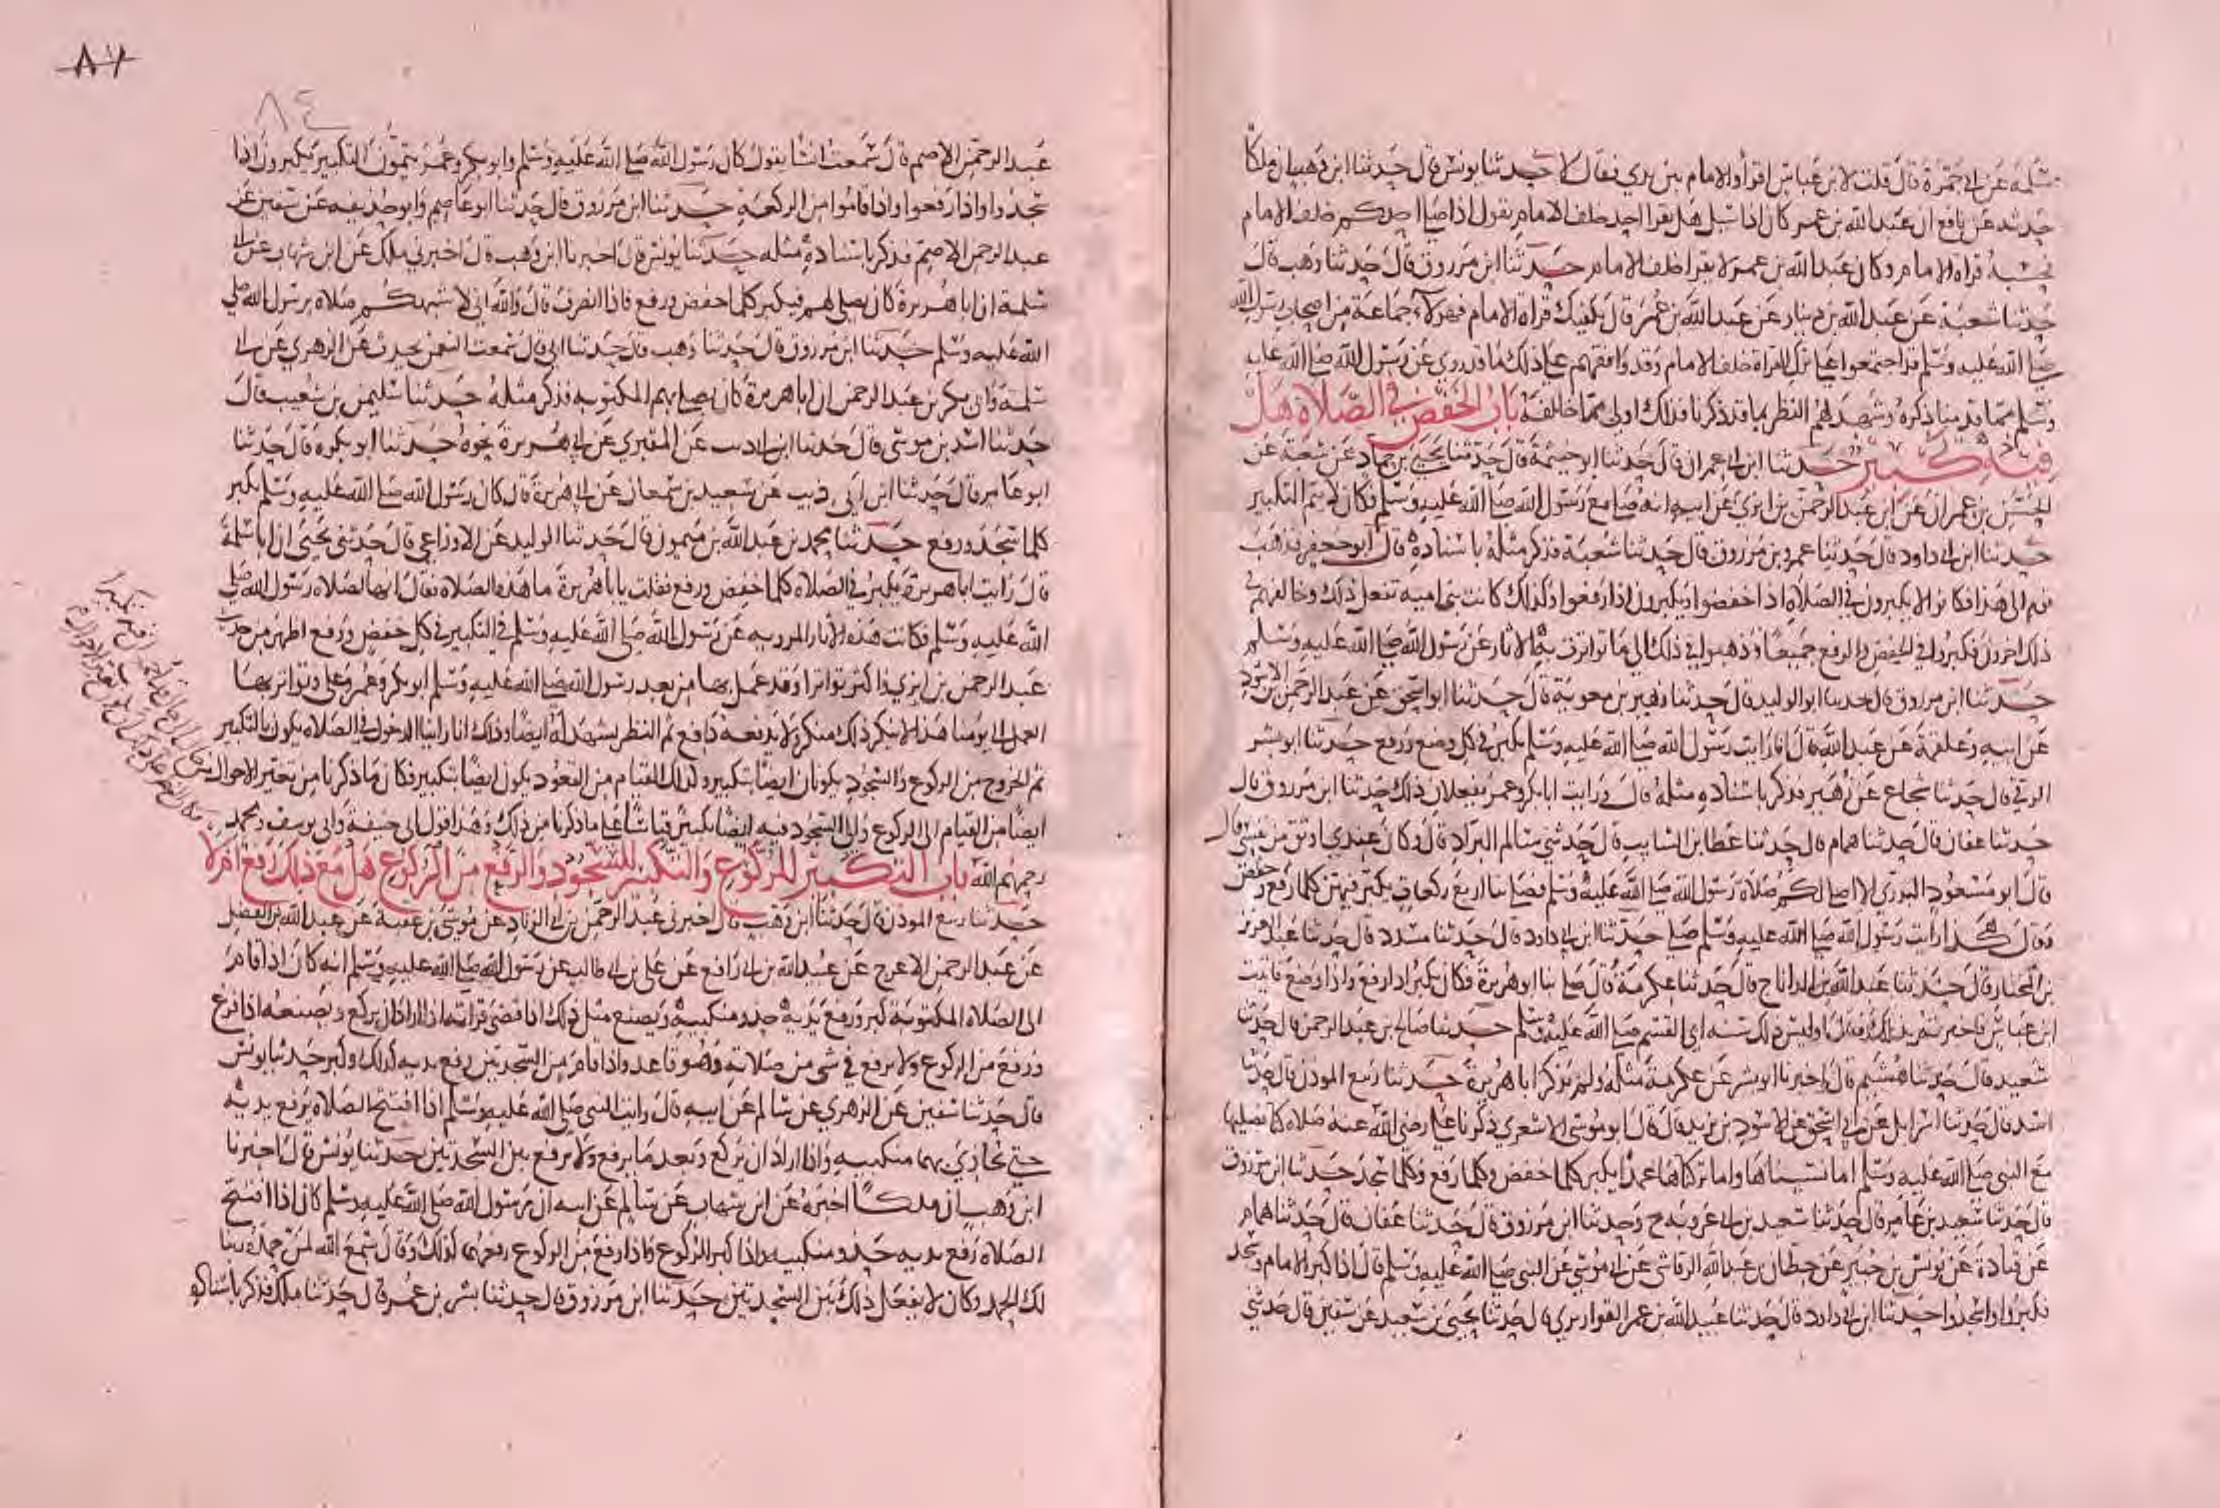 سلمة عن ابي جمرة قال قلت لابن عباس اقرأ والامام بين يدي فقال لا حدثنا يونس قال حدثنا ابن وهب ان ملكا
حدثه عن نافع ان عبد الله بن عمر كان اذا سيل هل يقرا احد خلف الامام يقول اذا صلى احدكم خلف الامام
فحسبه قراة الامام وكان عبد الله بن عمر لا يقرا خلف الامام حدثنا ابن مرزوق قال حدثنا وهب قال
حدثنا شعبة عن عبد الله بن دينار عن عبد الله بن عمر قال يكفيك قراة الامام فهولاء جماعة من اصحاب رسول الله
صلى الله عليه وسلم قد اجتمعوا على ترك القراة خلف الامام وقد وافقهم على ذلك ما قد روي عن رسول الله صلى الله عليه
وسلم مما قدمنا ذكره وشهد لهم النظر بما قد ذكرنا فذلك اولى مما خالفه باب الخفض في الصلاة هل
فيه تكبير حدثنا ابن ابي عمران قال حدثنا ابو خيثمة قال حدثنا يحيى بن حماد عن شعبة عن
الحسن بن عمران عن ابن عبد الرحمن بن ابزى عن ابيه انه صلى مع رسول الله صلى الله عليه وسلم فكان لا يتم التكبير
حدثنا ابن ابي داود قال حدثنا عمرو بن مرزوق قال حدثنا شعبة فذكر مثله باسناده قال ابو جعفر فذهب
قوم الى هذا فكانوا لا يكبرون في الصلاة اذا خفضوا ويكبرون اذا رفعوا وكذلك كانت بنو امية تفعل ذلك وخالفهم في
ذلك اخرون فكبروا في الخفض والرفع جميعا وذهبوا في ذلك الى ما تواترت به الاثار عن رسول الله صلى الله عليه وسلم
حدثنا ابن مرزوق قال حدثنا ابو الوليد قال حدثنا زهير بن معوية قال حدثنا ابو اسحق عن عبد الرحمن بن الاسود
عن ابيه وعلقمة عن عبد الله قال انا رايت رسول الله صلى الله عليه وسلم يكبر في كل وضع ورفع حدثنا ابو بشر
الرقي قال حدثنا شجاع عن زهير فذكر باسناده مثله قال ورايت ابا بكر وعمر يفعلان ذلك حدثنا ابن مرزوق قال
حدثنا عفان قال حدثنا همام قال حدثنا عطا بن السايب قال حدثني سالم البراد قال وكان عندي اوثق من نفسي قال
قال ابو مسعود البدري الا اصلي لكم صلاة رسول الله صلى الله عليه وسلم فصلى بنا اربع ركعات يكبر فيهن كلما رفع وخفض
وقال هكذا رايت رسول الله صلى الله عليه وسلم صلى حدثنا ابن ابي داود قال حدثنا مسدد قال حدثنا عبد العزيز
بن المختار قال حدثنا عبد الله بن الداناج قال حدثنا عكرمة قال صلى بنا ابو هريرة فكان يكبر اذا رفع واذا وضع فاتيت
ابن عباس فاخبرته بذلك فقال اوليس ذلك سنة ابي القسم صلى الله عليه وسلم حدثنا صالح بن عبد الرحمن قال حدثنا
سعيد قال حدثنا هشيم قال اخبرنا ابو بشر عن عكرمة مثله ولم يذكر ابا هريرة حدثنا ربيع الموذن قال حدثنا
اسد قال حدثنا اسرايل عن ابي اسحق عن الاسود بن يزيد قال قال ابو موسى الاشعري ذكرنا علي رضي الله عنه صلاة كنا نصليها
مع النبي صلى الله عليه وسلم اما نسيناها واما تركناها عمدا يكبر كلما خفض وكلما رفع وكلما سجد حدثنا ابن مرزوق
قال حدثنا سعيد بن عامر قال حدثنا سعيد بن ابي عروبة ح وحدثنا ابن مرزوق قال حدثنا عفان قال حدثنا همام
عن قتادة عن يونس بن جبير عن حطان بن عبد الله الرقاشي عن ابي موسى عن النبي صلى الله عليه وسلم قال اذا كبر الامام وسجد
فكبروا واسجدوا حدثنا ابن ابي داود قال حدثنا عبيد الله بن عمر القواريري قال حدثنا يحيى بن سعيد عن سفين قال حدثني
٨٤
عبد الرحمن الاصم قال سمعت انسا يقول كان رسول الله صلى الله عليه وسلم وابو بكر وعمر يتمون التكبير يكبرون اذا
سجدوا واذا رفعوا واذا قاموا من الركعة حدثنا ابن مرزوق قال حدثنا ابو عاصم وابو حذيفة عن سفين عن
عبد الرحمن الاصم فذكر باسناده مثله حدثنا يونس قال اخبرنا ابن وهب قال اخبرني ملك عن ابن شهاب عن ابي
سلمة ان ابا هريرة كان يصلي لهم فيكبر كلما خفض ورفع فاذا انصرف قال والله اني لاشبهكم صلاة برسول الله صلى
الله عليه وسلم حدثنا ابن مرزوق قال حدثنا وهب قال حدثنا ابي قال سمعت النعمن يحدث عن الزهري عن ابي
سلمة وابي بكر بن عبد الرحمن ان ابا هريرة كان يصلي بهم المكتوبة فذكر مثله حدثنا سليمن بن شعيب قال
حدثنا اسد بن موسى قال حدثنا ابن ابي ذيب عن المقبري عن ابي هريرة نحوه حدثنا ابو بكرة قال حدثنا
ابو عامر قال حدثنا ابن ابي ذيب عن سعيد بن سمعان عن ابي هريرة قال كان رسول الله صلى الله عليه وسلم يكبر
كلما سجد ورفع حدثنا محمد بن عبد الله بن ميمون قال حدثنا الوليد عن الاوزاعي قال حدثني يحيى ان ابا سلمة
قال رايت ابا هريرة يكبر في الصلاة كلما خفض ورفع فقلت يا با هريرة ما هذه الصلاة فقال انها لصلاة رسول الله صلى
الله عليه وسلم فكانت هذه الاثار المروية عن رسول الله صلى الله عليه وسلم في التكبير في كل خفض ورفع اظهر من حديث
عبد الرحمن بن ابزى واكثر تواترا وقد عمل بها من بعد رسول الله صلى الله عليه وسلم ابو بكر وعمر وعلي وتواتر بها
العمل الى يومنا هذا لا ينكر ذلك منكر ولا يدفعه دافع ثم النظر يشهد له ايضا وذلك انا راينا الدخول في الصلاة يكون بالتكبير
ثم الخروج من الركوع والسجود يكونان ايضا بتكبير وكذلك القيام من القعود يكون ايضا بتكبير فكان ما ذكرنا من تغير الاحوال من
ايضا من القيام الى الركوع والى السجود فيه ايضا تكبير قياسا على ما ذكرنا من ذلك وهذا قول ابي حنيفة وابي يوسف ومحمد
رحمهم الله باب التكبير للركوع والتكبير للسجود والرفع من الركوع هل مع ذلك رفع ام لا
حدثنا ربيع الموذن قال حدثنا ابن وهب قال اخبرني عبد الرحمن بن ابي الزناد عن موسى بن عقبة عن عبد الله بن الفضل
عن عبد الرحمن الاعرج عن عبيد الله بن ابي رافع عن علي بن ابي طالب عن رسول الله صلى الله عليه وسلم انه كان اذا قام
الى الصلاة المكتوبة كبر ورفع يديه حذو منكبيه ويصنع مثل ذلك اذا قضى قراته اذا اراد ان يركع ويصنعه اذا فرغ
ورفع من الركوع ولا يرفع في شي من صلاته وهو قاعد واذا قام من السجدتين رفع يديه كذلك وكبر حدثنا يونس
قال حدثنا سفين عن الزهري عن سالم عن ابيه قال رايت النبي صلى الله عليه وسلم اذا افتتح الصلاة يرفع يديه
حتى يحاذي بهما منكبيه واذا اراد ان يركع وبعد ما يرفع ولا يرفع بين السجدتين حدثنا يونس قال اخبرنا
ابن وهب ان ملكا اخبره عن ابن شهاب عن سالم عن ابيه ان رسول الله صلى الله عليه وسلم كان اذا افتتح
الصلاة رفع يديه حذو منكبيه واذا كبر للركوع واذا رفع من الركوع رفعهما كذلك وقال سمع الله لمن حمده ربنا
لك الحمد وكان لا يفعل ذلك بين السجدتين حدثنا ابن مرزوق قال حدثنا بشر بن عمر قال حدثنا ملك فذكر باسناده